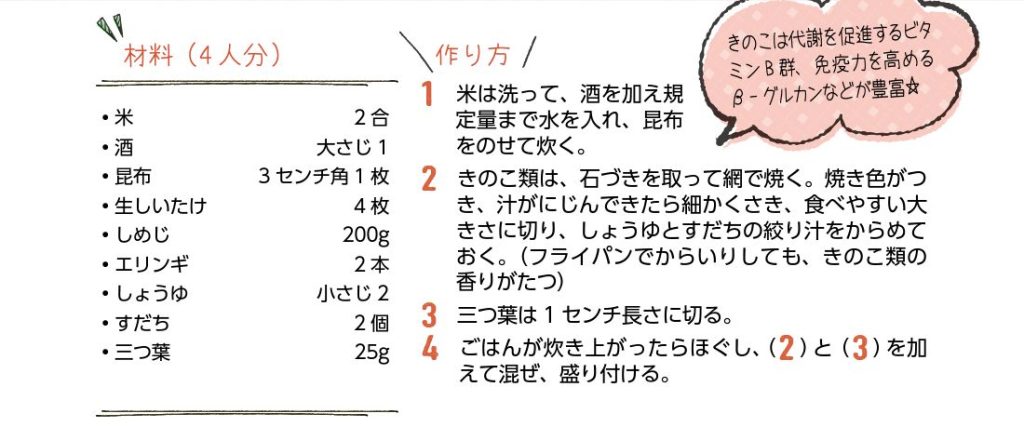 材料（4人分）
・米 2合
・酒 大さじ1
・昆布 3センチ角1枚
・生しいたけ 4枚
・しめじ 200g
・エリンギ 2本
・しょうゆ 小さじ2
・すだち 2個
・三つ葉 25g
作り方
1 米は洗って、酒を加え規
定量まで水を入れ、昆布
をのせて炊く。
2 きのこ類は、石づきを取って網で焼く。焼き色がつ
き、汁がにじんできたら細かくさき、食べやすい大
きさに切り、しょうゆとすだちの絞り汁をからめて
おく。（フライパンでからいりしても、きのこ類の
香りがたつ）
3 三つ葉は1センチ長さに切る。
4 ごはんが炊き上がったらほぐし、（2）と（3）を加
えて混ぜ、盛り付ける。
きのこは代謝を促進するビタ
ミンB群、免疫力を高める
β-グルカンなどが豊富☆